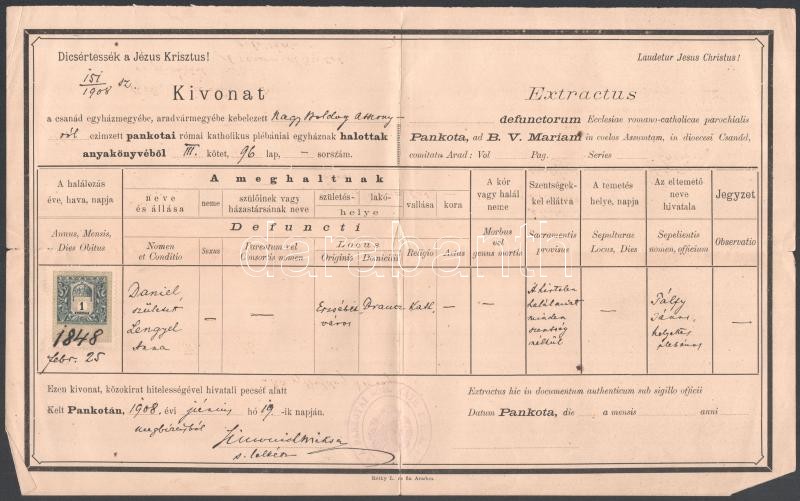 Dicsértessék a Jézus Krisztus!
Laudetur Jesus Christus!
151/1908 sz.
Kivonat
Extractus
a csanád egyházmegyébe, aradvármegyébe kebelezett Nagy Boldog Asszony-
ról czimzett pankotai római katholikus plébániai egyháznak halottak
anyakönyvéből III. kötet, 96 lap, — sorszám.
defunctorum Ecclesiae romano-catholicae parochialis
Pankota, ad B. V. Mariam in coelos Assumtam, in dioecesi Csanád,
comitatu Arad: Vol Pag. Series
A halálozás éve, hava, napja
A meghaltnak
neve és állása
neme
szülőinek vagy házastársának neve
születés- lakó-
helye
vallása
kora
A kór vagy halál neme
Szentségekkel ellátva
A temetés helye, napja
Az eltemető neve hivatala
Jegyzet
Annus, Mensis, Dies Obitus
Defuncti
Nomen et Conditio
Sexus
Parentum vel Consortis nomen
Locus
Originis
Domicilii
Religio
Aetas
Morbus vel genus mortis
Sacramentis provisus
Sepulturae Locus, Dies
Sepelientis nomen, officium
Observatio
1
1848
febr. 25
Daniel,
született
Lengyel
Anna
— —
Erzsébet
város
Kath.
— —
A hirtelen
halál miatt
minden
szentség
nélkül
—
Pálfy
János,
helyettes
plébános
—
darabanth
Ezen kivonat, közokirat hitelességével hivatali pecsét alatt
Kelt Pankotán, 1908. évi junius hó 19.-ik napján.
megbizásból
s. lelkész
Extractus hic in documentum authenticum sub sigillo officii
Datum Pankota, die a mensis anni
Réthy L. és fia Arados.